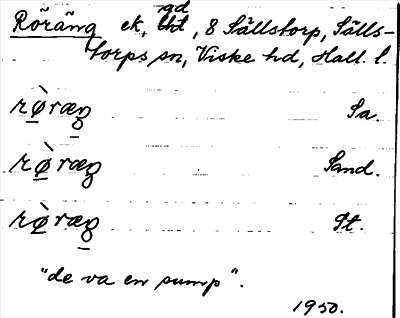 Röräng ek, gd, 8 Sällstorp, Sälls-
torps sn, Viske hd, Hall. l.
rø̀ræŋ Sa.
rø̀ræŋ Sand.
rø̀ræŋ St.
"de va en sump".
1950.